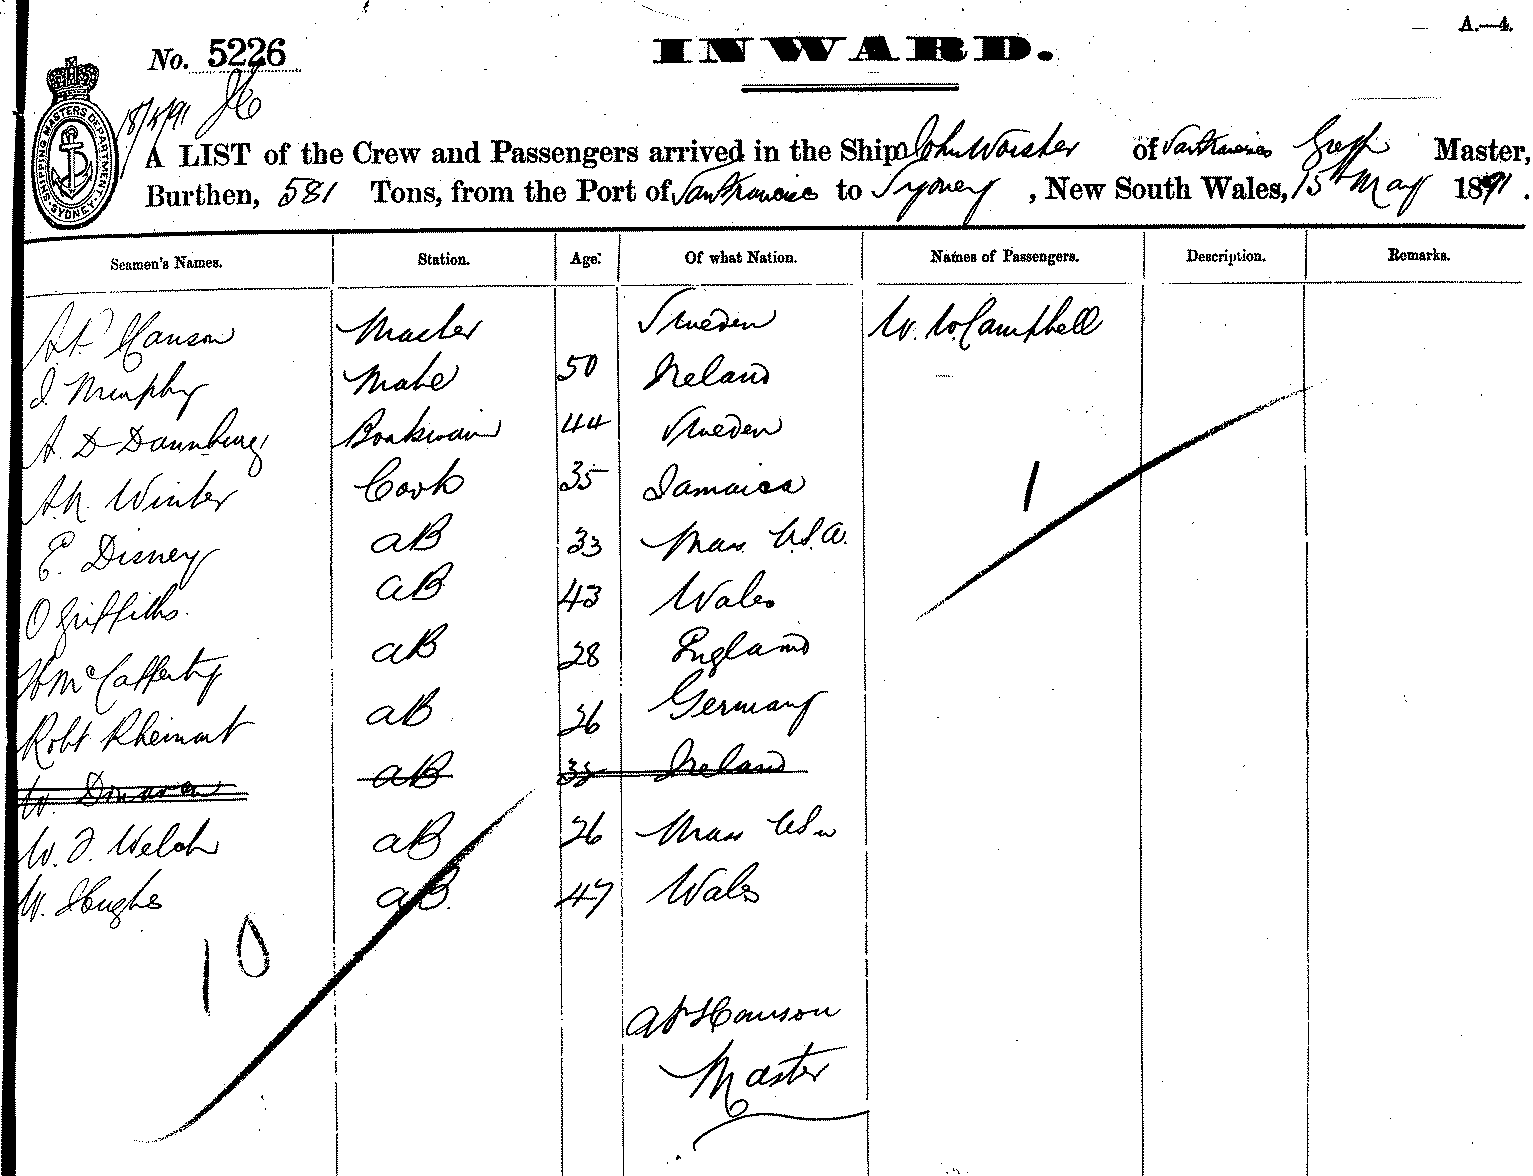 A.—4.
No. 5226
INWARD.
18/5/91
SHIPPING MASTERS DEPARTMENT SYDNEY
A LIST of the Crew and Passengers arrived in the Ship John Worster of San Francisco Master,
Burthen, 581 Tons, from the Port of San Francisco to Sydney, New South Wales, 15th May 1891.
Seamen's Names. Station. Age: Of what Nation. Names of Passengers. Description. Remarks.
A.F. Hanson Master Sweden W. W. Campbell
J Murphy Mate 50 Ireland
A. D Dannberg Boatswain 44 Sweden
A.N. Winter Cook 35 Jamaica
E. Disney AB 33 Mass. U.S.A.
O Griffiths. AB 43 Wales
H McCafferty AB 28 England
Robt Rheinart AB 26 Germany
W. Donovan AB 35 Ireland
W. J. Welch AB 26 Mass USA
W. Hughes AB. 47 Wales
1
10
AF Hanson
Master